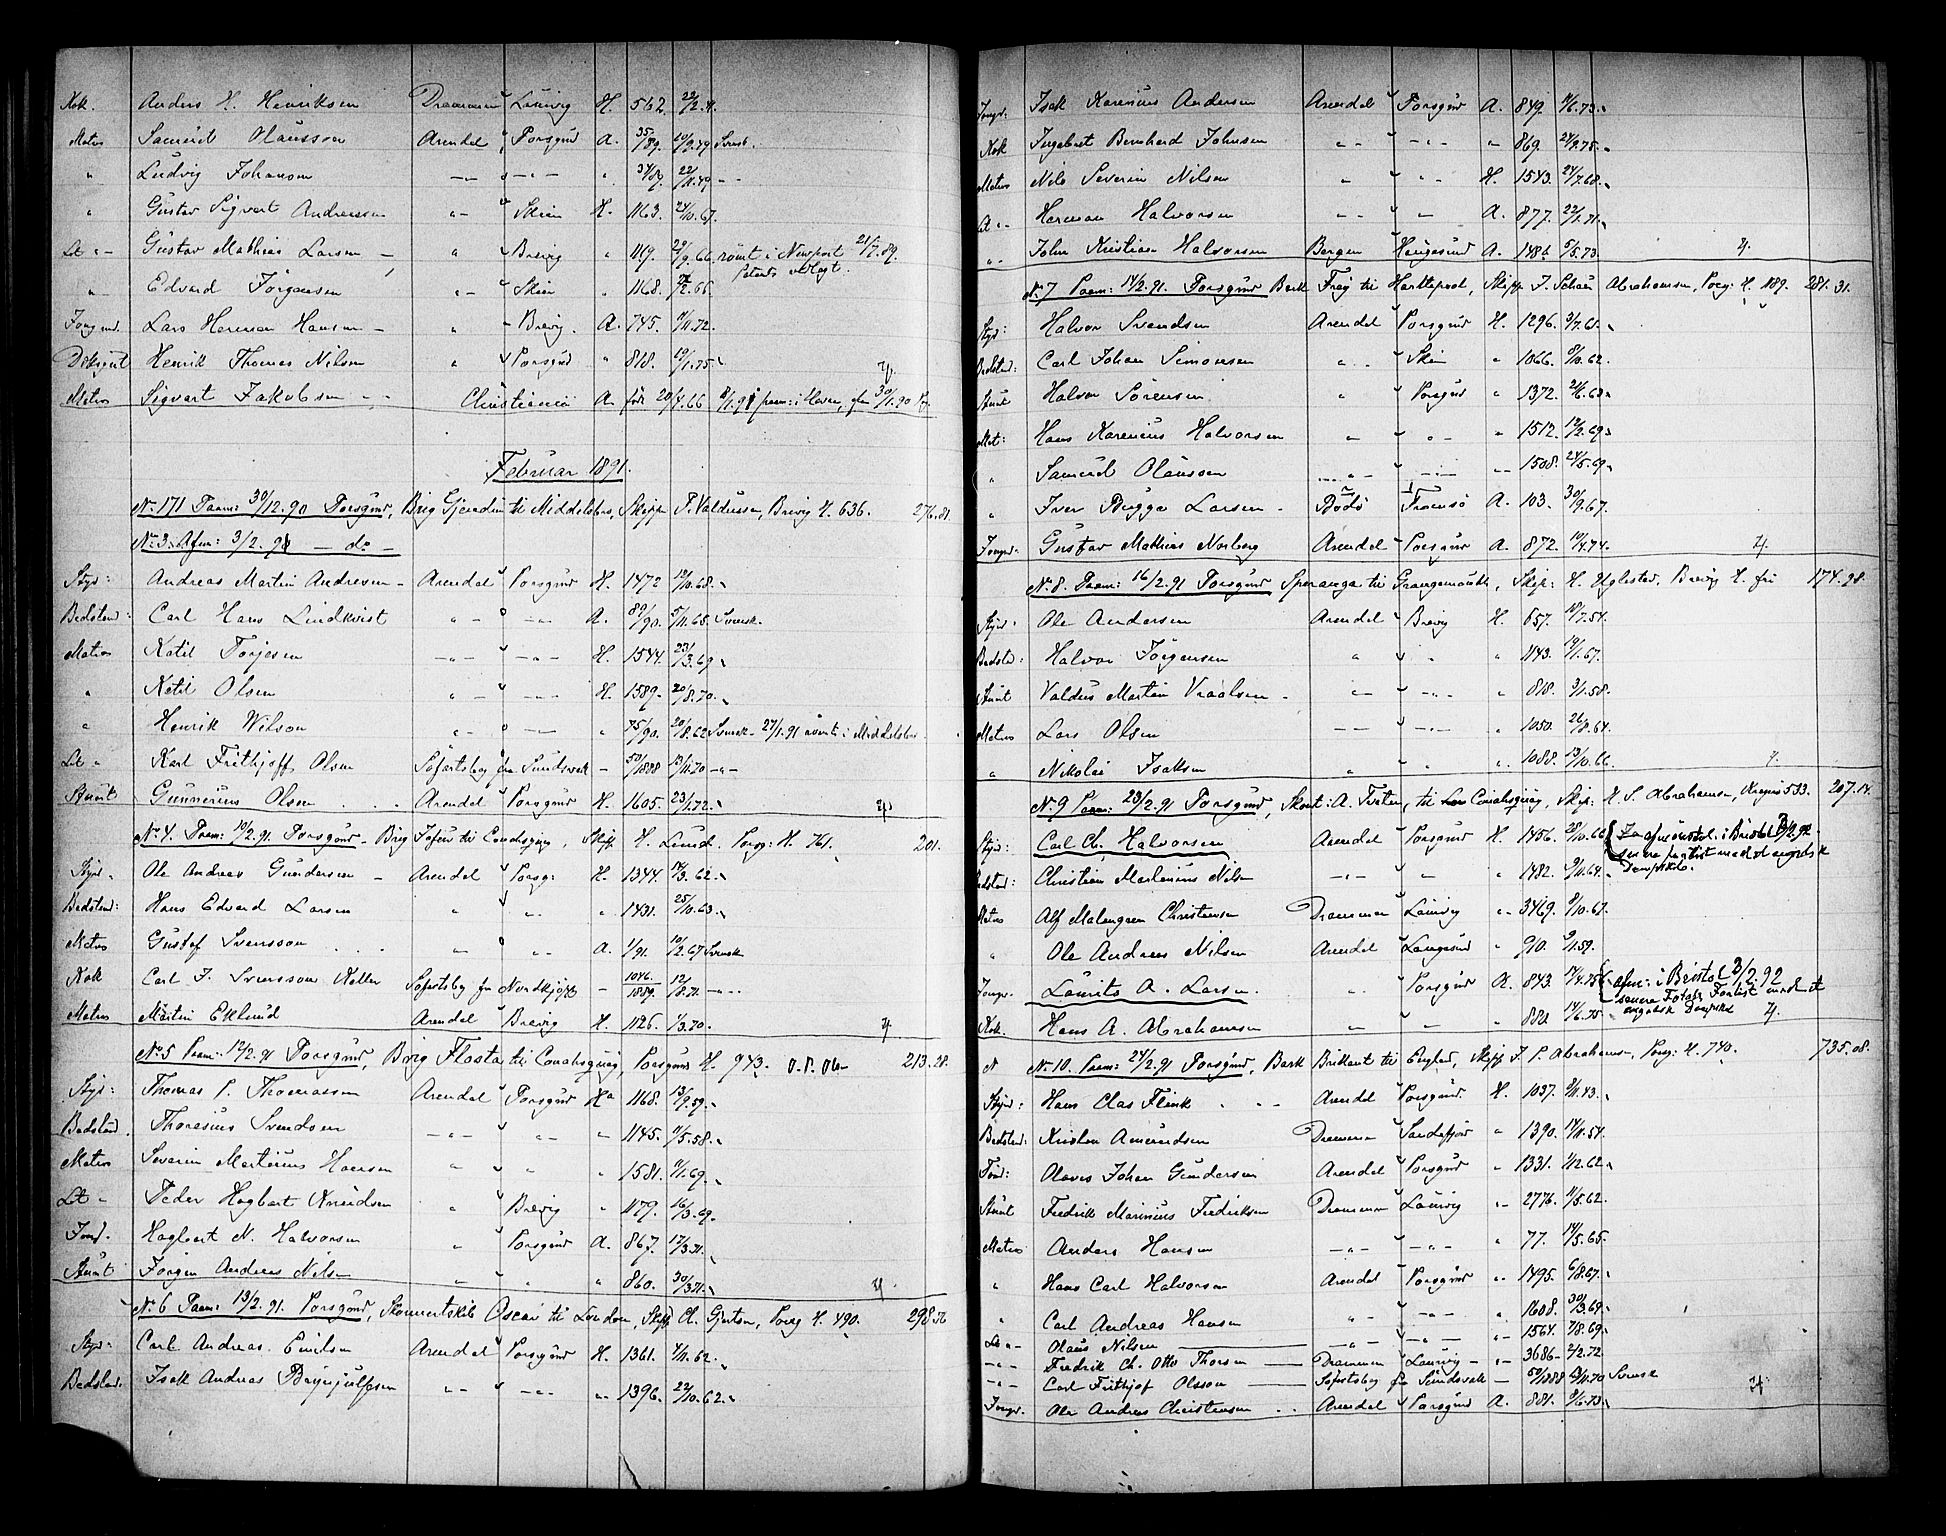 Kok. Anders H. Henriksen Drammen Laurvig H. 562. 22/2.
Matros Samuel Olausson Arendal Porsgrund A. 35/89. 20/9.79 Svensk.
" Ludvig Johanson —"— —"— " 34/89. 22/11.49 —"—
" Gustav Sigvart Andreassen "— Skien H. 1163. 24/10.67.
Let "— Gustav Mathias Larsen — " Brevig " 1119. 29/9.66 römt i Newport 21/7.89.
" Edvard Jörgensen "— Skien " 1168. /2.66.
Jungmd. Lars Herman Hansen — " Brevig. A. 745. 9/11.72.
Dæksgut Henrik Thomas Nilsen " Porsgrund " 818. 19/1.75.
Matros Sigvart Jakobsen "— Christiania A. föd 20/4.66 8/1.91 paam: i Haven, 30/1.90
Februar 1891.
No 171 Paam: 30/12.90 Porsgrund, Brig Gjendin til Middelsbro, Skipp P. Valdersen, Brevig H. 636. 276.81.
No 3. Afm: 3/2.91 — do —
Styr: Andreas Martin Andresen — Arendal Porsgrund H. 1472 19/10.68.
Bedstmd: Carl Hans Lindkvist "— —"— A. 89/90. 5/11.65. Svensk.
Matros Ketil Torjesen —"— —"— H. 1544. 23/3.69.
" Ketil Olsen "— —"— H. 1589. 20/8.70.
" Henrik Wilson "— —"— " 75/90. 20/8.62 Svensk — 27/1.91 römte i Middelsbro.
Let " Karl Frithjoff Olsen Söfartsbog fra Sundsvall — 50/1888 13/11.70 —"—
Stuert Gunnerius Olsen Arendal Porsgrund H. 1605. 23/1.72.
No 4. Paam: 10/2.91 Porsgrund — Brig Jofur til Conahsquay, Skipp H. Lund. Porsg: H. 761. 201.
Styr. Ole Andreas Gundersen — Arendal Porsg: H. 1344. 14/3.62.
Bedstmd: Hans Edvard Larsen " " " 1431. 25/10.63.
Matros Gustaf Svensson " " A. 1/91. 10/2.67 Svensk
Kok Carl J. Svensson Keller Söfartsbog fra Nordkjöp — 1046/1889. 12/8.71. —"—
Matros Martin Eklund Arendal Brevig H. 1126. 1/3.70.
No 5 Paam: 12/2.91 Porsgrund, Brig Flosta til Conahsquay, Porsgrund H. 943. O. P. Ob— 213.28.
Styr: Thomas P. Thomassen Arendal Porsgrund H. 1168. 13/9.59.
Bedstmd. Thoresius Svendsen —"— " " 1145. 11/5.58.
Matros Severin Martinius Hansen " " " 1581. 9/1.69.
Let " Peder Hagbart Knudsen " Brevig " 1179. 16/3.69.
Jmd. Hagbart N. Halvorsen " Porsgrund A. 867. 17/3.71.
Stuert Jörgen Andreas Nilsen " " " 860. 30/3.71.
No 6 Paam: 13/2.91. Porsgrund, Skonnertskib Oscar til London, Skipp Ch. Gjertsen, Porsg H. 490. 298.56
Styr: Carl Andreas Emilsen Arendal Porsgrund H. 1361. 4/11.62.
Bedstmd. Isak Andreas Brynjulfsen "— —"— " 1396. 22/10.62.
Jungm: Isak Karenius Andersen Arendal Porsgrund A. 849. 9/6.73.
Kok Ingebret Bernhard Johnsen "— —"— " 869. 24/9.75.
Matros Nils Severin Nilsen " " H. 1543. 24/7.68.
Let "— Herman Halvorsen "— " A. 877. 22/1.71.
"— John Kristian Halvorsen Bergen Haugesund A. 1486. 5/5.73.
No 7 Paam: 14/2.91. Porsgrund Bark Freij til Hartlepool, Skipp J. Schau Abrahamsen, Porsg: H. 189. 281.31.
Styr: Halvor Svendsen Arendal Porsgrund H. 1296. 3/7.65.
Bedstmd: Carl Johan Simonsen " Skien " 1066. 8/10.62.
Stuert Halvor Sörensen " Porsgrund " 1372. 24/6.68.
Mat: Hans Karenius Halvorsen " " " 1512. 12/2.69.
" Samuel Olaussen —"— —"— "— 1508. 24/5.69.
" Iver Bugge Larsen — Bodö Tromsö A. 103. 30/9.67.
Jungm. Gustav Mathias Norberg Arendal Porsgrund A. 872. 10/4.74.
No 8. Paam: 16/2.91 Porsgrund Speranza til Grangemouth, Skip: H. Uglestad, Brevig H. fri 174.98.
Styr. Ole Andersen Arendal Brevig H. 657. 18/7.54.
Bedstd: Halvor Jörgensen " " " 1143. 19/1.67.
Stuert Valdus Martin Vraalsen — "— —"— " 818. 3/1.58.
Matros Lars Olsen —"— —"— " 1050. 26/8.64.
" Nikolai Isaksen " " " 1088. 13/10.66.
No 9 Paam: 23/2.91 Porsgrund, Skont: A. Festen, til Conahsquay, Skip: H. S. Abrahamsen, 533. 207.14.
Styr: Carl Ch. Halvorsen Arendal Porsgrund H. 1456. 28/10.66 afmönstd. i Bristol 3/2.92
senere forlist med et engelsk
Dampskib.
Bedstmd: Christian Martinius Nilsen —"— " " 1482. 9/11.64.
Matros Alf Malmgren Christensen Drammen Laurvig "— 3469. 9/10.67.
" Ole Andreas Nilsen Arendal Langesund " 910. 9/1.59.
Jungm. Laurits A. Larsen. " Porsgrund A. 843. 14/4.75 afm: i Bristol 3/2.92
senere Forlist med et
engelsk Dampskib
Kok. Hans A. Abrahamsen " " " 14/6.75
No 10. Paam: 24/2.91 Porsgrund, Bark Brillant til England, Skipp J. P. Abrahamsen, Porsg: H. 740. 735.08.
Styr: Hans Clas Flink "— Arendal Porsgrund. H. 1037. 9/11.43.
Bedstmd: Kristen Amundsen Drammen Sandefjord " 1390. 14/11.54.
Tmd: Olaves Johan Gundersen Arendal Porsgrund " 1331. 1/12.62.
Stuert Fredrik Marinius Fredriksen Drammen Laurvig "— 2776. 11/5.62.
Matros Anders Hansen —"— —"— " 77. 14/5.65.
" Hans Carl Halvorsen Arendal Porsgrund " 1495. 6/8.67.
" Carl Andreas Hansen "— —"— " 1608. 30/3.69.
Let "— Olaus Nilsen —"— —"— "— 1564. 7/8.69.
—"— Fredrik Ch. Otto Thorsen — Drammen Laurvig — "— 3686 — 2/2.72
—"— Carl Frithjof Olsson — Söfartsbog fra Sundsvall — 50/1888 13/11.70 Svensk
Jungm. Ole Andreas Christensen "— Arendal Porsgrund A. 881. 9/6.73.